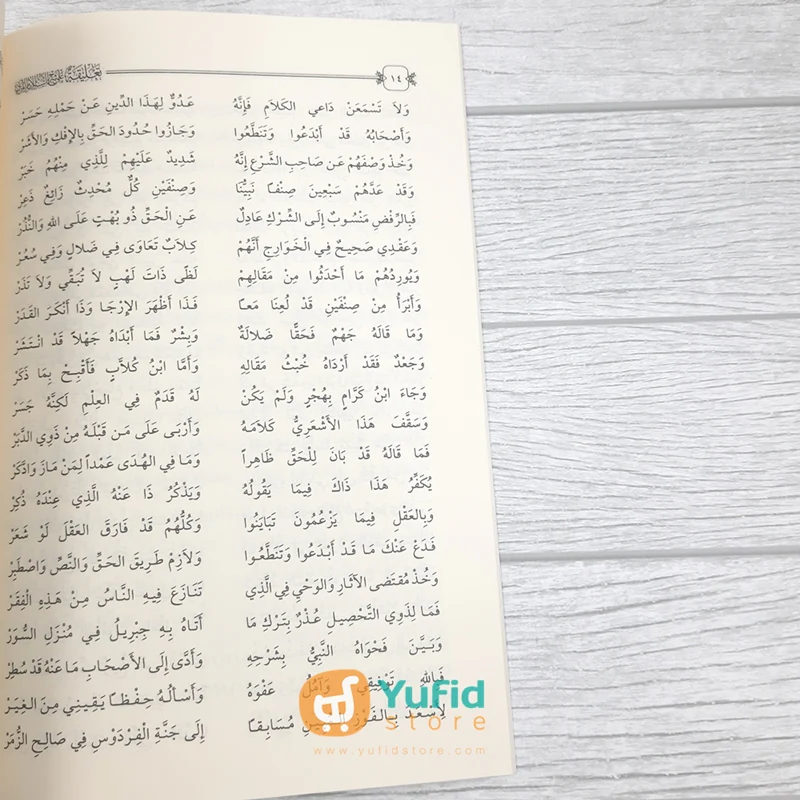 ١٤
وَلاَ تَسْمَعَنْ دَاعِي الكَلَامِ فَإِنَّهُ عَدُوٌّ لِهَذَا الدِّينِ عَنْ حَمْلِهِ حَسَرْ
وَأَصْحَابُهُ قَدْ أَبْدَعُوا وَتَنَطَّعُوا وَجَازُوا حُدُودَ الحَقِّ بِالإِفْكِ وَالأَشَرْ
وَخُذْ وَصْفَهُمْ عَن صَاحِبِ الشَّرْعِ إِنَّهُ شَدِيدٌ عَلَيْهِمْ لِلَّذِي مِنْهُمُ خَبَرْ
وَقَدْ عَدَّهُمْ سَبْعِينَ صِنْفاً نَبِيُّنَا وَصِنْفَيْنِ كُلٌّ مُحْدِثٌ زَائِغٌ ذَعِرْ
فَبِالرَّفْضِ مَنْسُوبٌ إِلَى الشِّرْكِ عَادِلٌ عَنِ الْحَقِّ ذُو بُهْتٍ عَلَى اللهِ وَالنُّذُرْ
وَعَقْدِي صَحِيحٌ فِي الْخَوَارِجِ أَنَّهُمْ كِلاَبٌ تَعَاوَى فِي ضَلَالٍ وَفِي سُعُرْ
وَيُورِدُهُمْ مَا أَحْدَثُوا مِنْ مَقَالِهِمْ لَظًى ذَاتَ لَهْبٍ لاَ تُبَقِّي وَلاَ تَذَرْ
وَأَبْرَأُ مِنْ صِنْفَيْنِ قَدْ لُعِنَا مَعاً فَذَا أَظْهَرَ الإِرْجَا وَذَا أَنْكَرَ القَدَرْ
وَمَا قَالَهُ جَهْمٌ فَحَقًّا ضَلالَةٌ وَبِشْرٌ فَمَا أَبْدَاهُ جَهْلاً قَدْ انْتَشَرْ
وَجَعْدٌ فَقَدْ أَرْدَاهُ خُبْثُ مَقَالِهِ وَأَمَّا ابْنُ كُلاَّبٍ فَأَقْبِحْ بِمَا ذَكَرْ
وَجَاءَ ابْنُ كَرَّامٍ بِهُجْرٍ وَلَمْ يَكُنْ لَهُ قَدَمٌ فِي العِلْمِ لَكِنَّهُ جَسَرْ
وَسَقَّفَ هَذَا الأَشْعَرِيُّ كَلَامَهُ وَأَرْبَى عَلَى مَن قَبْلَهُ مِنْ ذَوِي الدَّبَرْ
فَمَا قَالَهُ قَدْ بَانَ لِلْحَقِّ ظَاهِراً وَمَا فِي الهُدَى عَمْداً لِمَنْ مَازَ وَادَّكَرْ
يُكَفِّرُ هَذَا ذَاكَ فِيمَا يَقُولُهُ وَيَذْكُرُ ذَا عَنْهُ الَّذِي عِنْدَهُ ذُكِرْ
وَبِالعَقْلِ فِيمَا يَزْعُمُونَ تَبَايَنُوا وَكُلُّهُمُ قَدْ فَارَقَ العَقْلَ لَوْ شَعَرْ
فَدَعْ عَنْكَ مَا قَدْ أَبْدَعُوا وَتَنَطَّعُوا وَلاَزِمْ طَرِيقَ الحَقِّ وَالنَّصِّ وَاصْطَبِرْ
وَخُذْ مُقْتَضَى الآثَارِ وَالوَحْيِ فِي الَّذِي تَنَازَعَ فِيهِ النَّاسُ مِنْ هَذِهِ الْفِقَرْ
فَمَا لِذَوِي التَّحْصِيلِ عُذْرٌ بِتَرْكِ مَا أَتَاهُ بِهِ جِبْرِيلُ فِي مُنْزَلِ السُّوَرْ
وَبَيَّنَ فَحْوَاهُ النَّبِيُّ بِشَرْحِهِ وَأَدَّى إِلَى الأَصْحَابِ مَا عَنْهُ قَدْ سُطِرْ
فَبِاللهِ تَوْفِيقِي وَآمُلُ عَفْوَهُ وَأَسْأَلُهُ حِفْظاً يَقِينِي مِنَ الغِيَرْ
لِأَسْعَدَ بِالفَوْزِ مُسَابِقاً إِلَى جَنَّةِ الْفِرْدَوْسِ فِي صَالِحِ الزُّمَرْ
YuFid
store
www.yufidstore.com